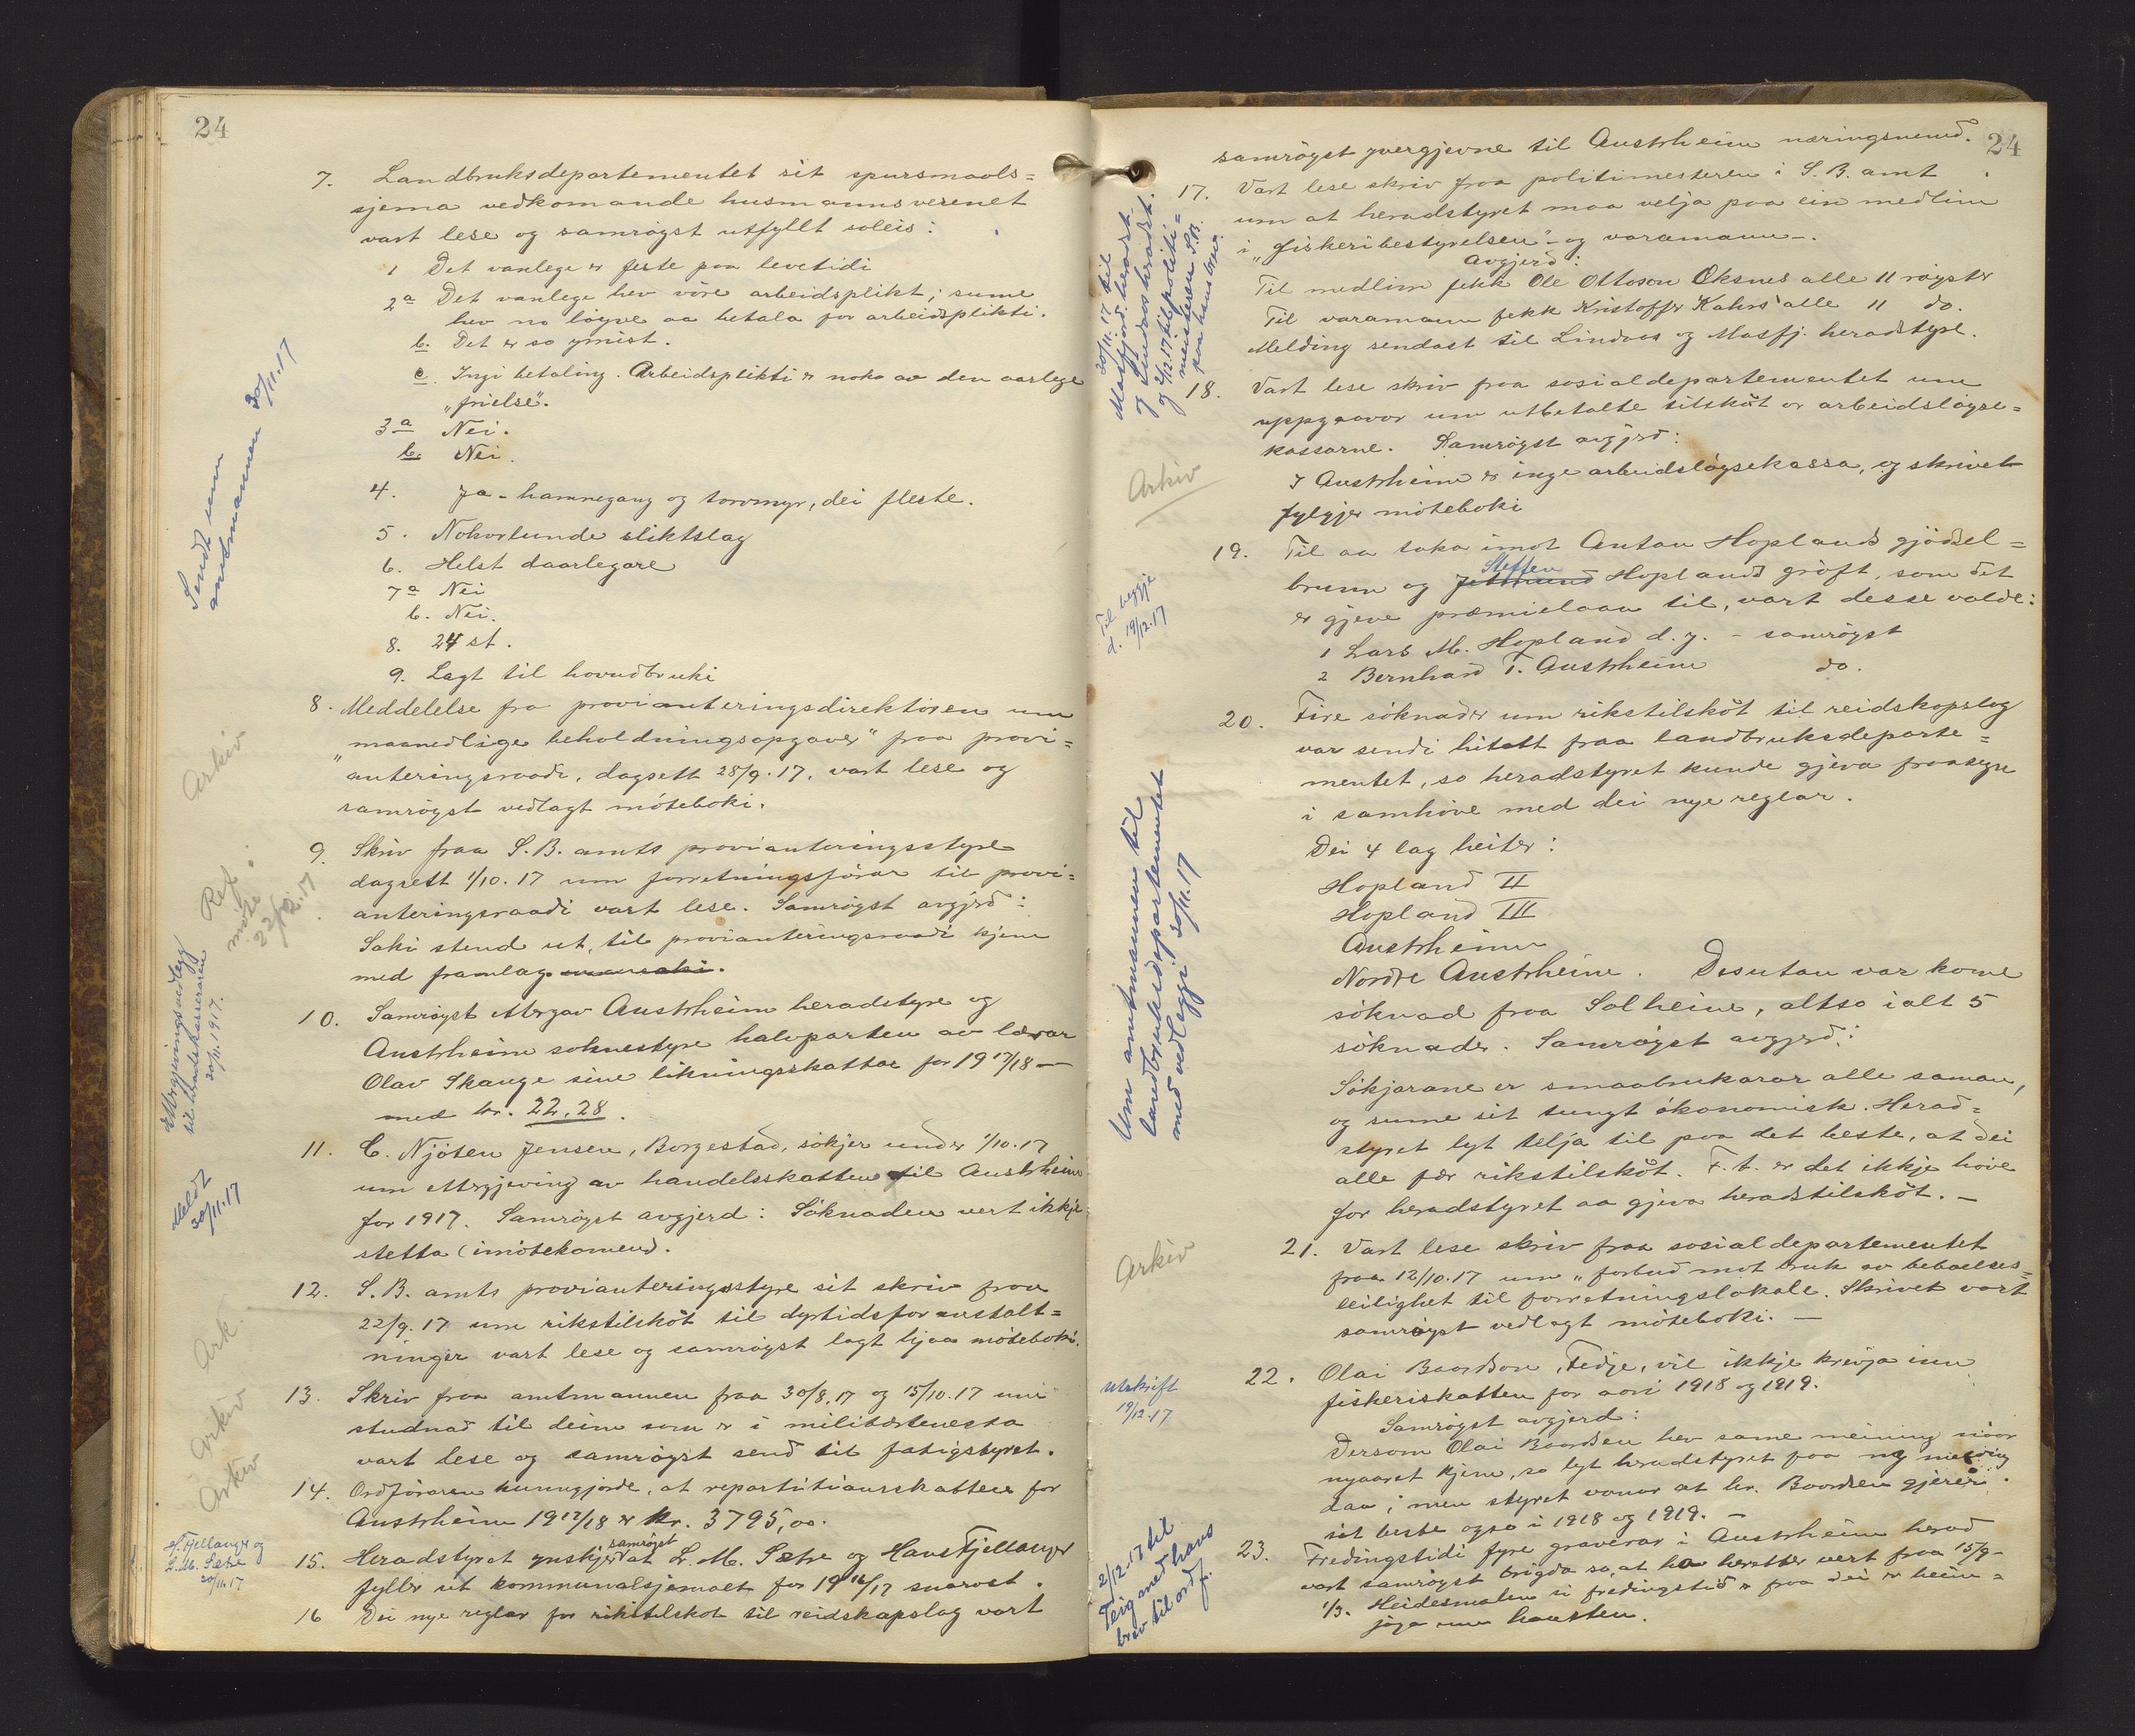 24
7. Landbruksdepartementet sit spursmaals=
sjema vedkomande husmannsverenet
vart lese og samrøyst utfyllt soleis:
1 Det vanlege er feste paa levetidi
2a Det vanlege hev vore arbeidsplikt; sume
hev no løyve aa betala for arbeidsplikti.
b. Det er so ymist.
c. Ingi betaling. Arbeidsplikti er noko av den aarlege
"frielse".
3a Nei.
b. Nei.
4. Ja - hamnegang og torvmyr, dei fleste.
5. Nokorlunde sliktslag
6. Helst daarlegare
7a Nei
b. Nei.
8. 24 st.
9. Lagt til hovudbruki
Sendt um
amtmannen 30/11.17
8. Meddelelse fra provianteringsdirektøren um
"maanedlige beholdningsopgaver" fraa provi=
anteringsraadi, dagsett 28/9.17. vart lese og
samrøyst vedlagt møteboki.
Arkiv
9. Skriv fraa S.B. amts provianteringsstyre
dagsett 1/10.17 um forretningsførar til provi=
anteringsraadi vart lese. Samrøyst avgjerd:
Saki stend ut, til provianteringsraadi kjem
med framlag.
Ref.
møte
22/12.17
10. Samrøyst ettergav Austrheim heradstyre og
Austrheim soknestyre halvparten av lærar
Olav Skauge sine likningsskattar for 1917/18 —
med kr. 22,28.
Ettergjevingsvedlegg
til heradskasseraren
30/11.1917.
11. C. Njøten Jensen, Borgestad, søkjer under 1/10.17
um ettergjeving av handelsskatten til Austrheim
for 1917. Samrøyst avgjerd: Søknaden vert ikkje
stetta (imøtekomen).
Meldt
30/11.17
12. S.B. amts provianteringsstyre sit skriv fraa
22/9.17 um rikstilskøt til dyrtidsforanstalt=
ninger vart lese og samrøyst lagt hjaa møteboki.
Ark.
13. Skriv fraa amtmannen fraa 30/8.17 og 15/10.17 um
studnad til deim som er i militærtenesta
vart lese og samrøyst send til fatigstyret.
Arkiv
14. Ordføraren kunngjorde, at repartitiansskatten for
Austrheim 1917/18 er kr. 3795,00.
Arkiv
15. Heradstyret ynskjer samrøyst at L. M. Sætre og Hans Fjellanger
fyller ut kommunalsjemaet for 1916/17 snarast.
H. Fjellanger og
L. M. Sætre
30/11.17
16 Dei nye reglar for rikstilskot til reidskapslag vart
24
samrøyst yvergjevne til Austrheim næringsnemd.
17. Vart lese skriv fraa politimesteren i S.B. amt
um at heradstyret maa velja paa ein medlim
i "fiskeribestyrelsen" - og varamann -.
Avgjerd:
Til medlim fekk Ole Ottoson Oksnes alle 11 røyster
Til varamann fekk Kristoffer Kahrs alle 11 do.
Melding sendast til Lindaas og Masfj. heradstyre.
30/11.17 til
Masfjord. heradst.
og Lindaas heradst.
og 2/12.17 til politi=
meisteren S.B.
paa hans brev.
18. Vart lese skriv fraa sosialdepartementet um
uppgaavor um utbetalte tilskøt or arbeidsløyse=
kassarne. Samrøyst avgjerd:
I Austrheim er inge arbeidsløysekassa, og skrivet
fylgjer møteboki
Arkiv
19. Til aa taka imot Antan Hoplands gjødsel=
brunn og Steffen Hoplands grøft, som det
er gjeve præmielaan til, vart desse valde:
1 Lars M. Hopland d.y. - samrøyst
2 Bernhard T. Austrheim do.
Til begge
d. 19/12.17
20. Fire søknader um rikstilskøt til reidskapslag
var sendi hitatt fraa landbruksdeparte=
mentet, so heradstyret kunde gjeva fraasegn
i samhøve med dei nye reglar.
Dei 4 lag heiter:
Hopland II
Hopland III
Austrheim
Nordre Austrheim. Desutan var kome
søknad fraa Solheim, altso ialt 5
søknader. Samrøyst avgjerd:
Søkjarane er smaabrukarar alle saman,
og sume sit tungt økonomisk. Herad=
styret lyt telja til paa det beste, at dei
alle fær rikstilskøt. F.t. er det ikkje høve
for heradstyret aa gjeva heradstilskøt. —
Um amtmannen til
landbruksdepartementet
med vedlegg 30/11.17
21. Vart lese skriv fraa sosialdepartementet
fraa 12/10.17 um "forbud mot bruk av beboelses=
leilighet til forretningslokale. Skrivet vart
samrøyst vedlagt møteboki. —
Arkiv
22. Olai Baardson, Fedje, vil ikkje krevja inn
fiskeriskatten for aari 1918 og 1919.
Samrøyst avgjerd:
Dersom Olai Baardsen hev same meining naar
nyaaret kjem, so lyt heradstyret faa ny melding
daa; men styret vonar at hr. Baardsen gjerer
sit beste ogso i 1918 og 1919. —
Utskrift
19/12.17
23. Fredingstidi fyre graverar i Austrheim herad
vart samrøyst brigda so, at ho heretter vert fraa 15/9-
1/3. Heidesmalen si fredingstid er fraa dei er heim=
jøga um hausten.
2/12.17 til
Teig med hans
brev til ordf.